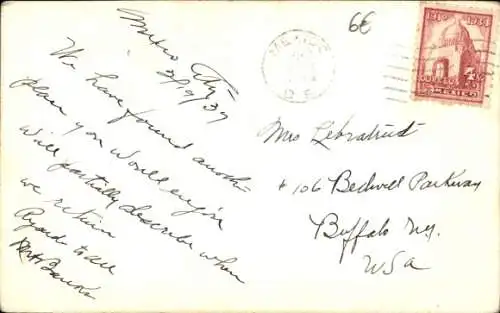 6€
Mexico City
2/19/37
We have found another
place you would enjoy
Will partially describe when
we return
Regards to all
MEXICO
D. F.
1910 1934
CORREOS
4
MEXICO
Mrs
106 Bedwell Parkway
Buffalo N.y.
USA